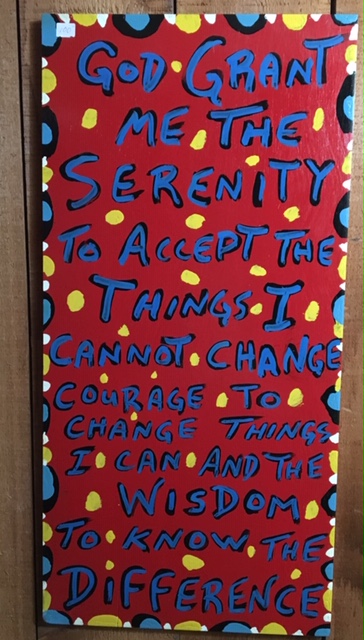 GOD GRANT
ME THE
SERENITY
TO ACCEPT THE
THINGS I
CANNOT CHANGE
COURAGE TO
CHANGE THINGS
I CAN AND THE
WISDOM
TO KNOW THE
DIFFERENCE